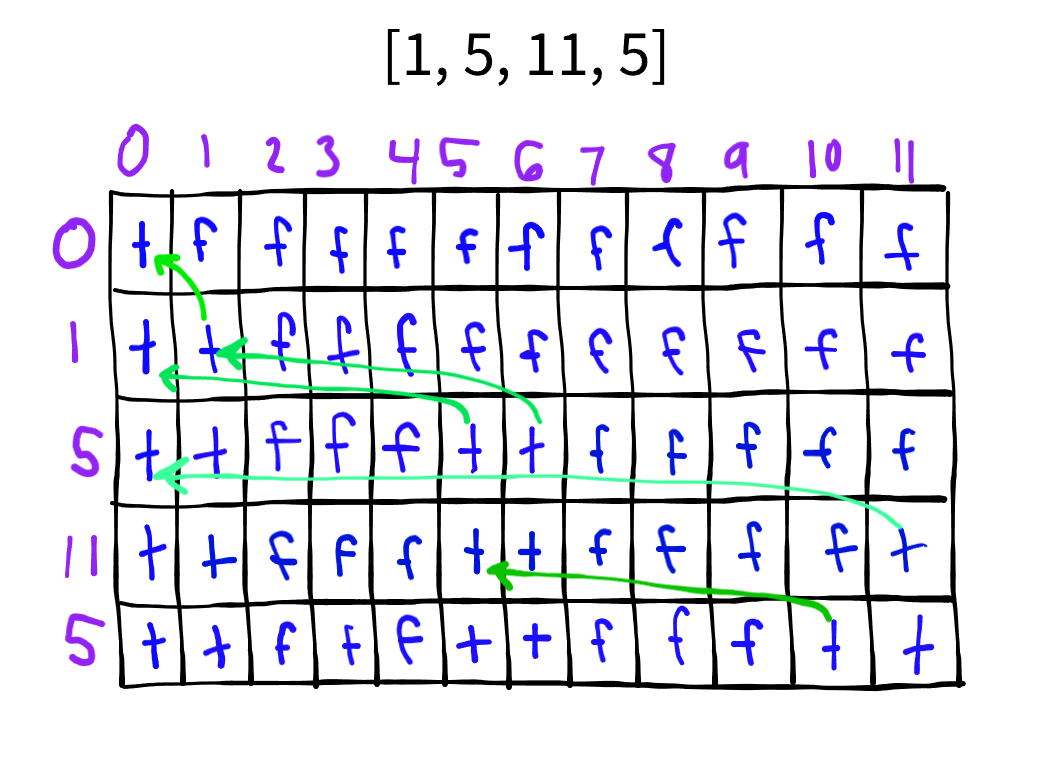 [1, 5, 11, 5]
0 1 2 3 4 5 6 7 8 9 10 11
0 t f f f f f f f f f f f
1 t t f f f f f f f f f f
5 t t f f f t t f f f f f
11 t t f f f t t f f f f t
5 t t f f f t t f f f t t